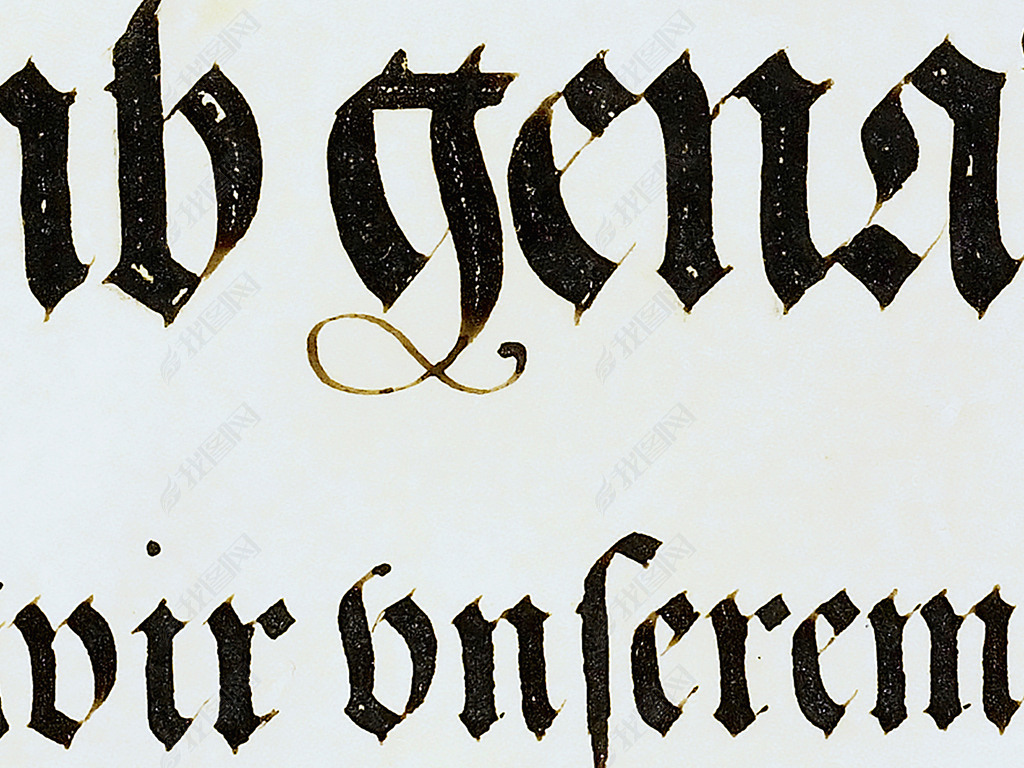 nb gena
wir vnſerem